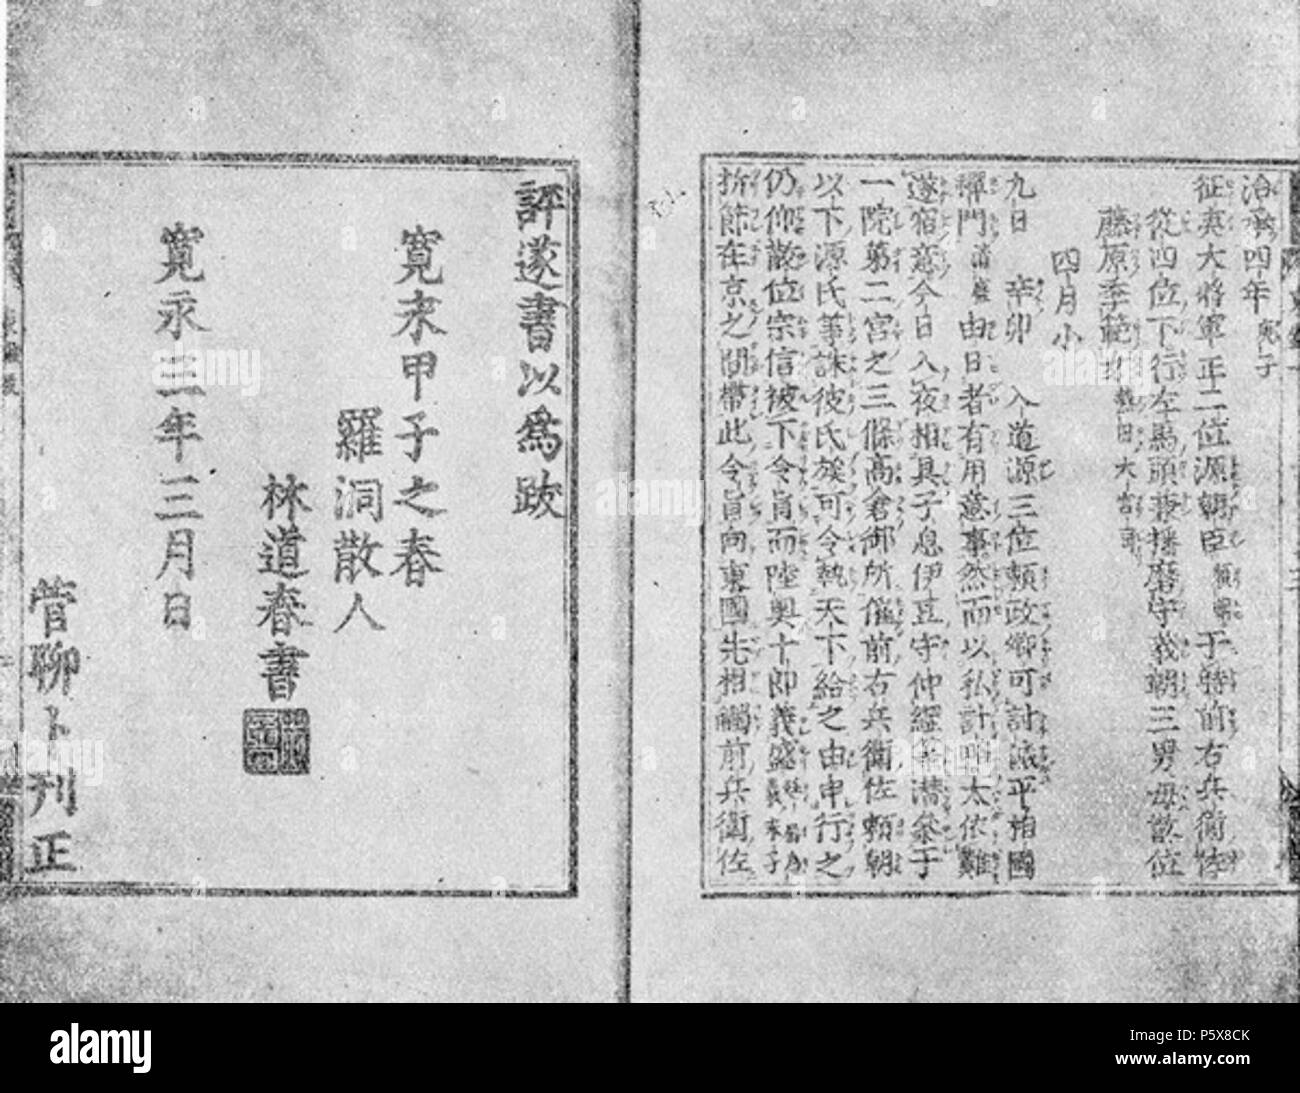 治承四年庚子
征夷大将軍正二位源朝臣頼朝于時前右兵衛佐
從四位下行左馬頭兼播磨守義朝三男母散位
藤原季範女熱田大宮司
四月小
九日 辛卯 入道源三位頼政卿可討滅平相國
禪門清盛由日者有用意事然而以私計略太依難
遂宿意今日入夜相具子息伊豆守仲綱等潜参于
一院第二宮之三條高倉御所催前右兵衛佐頼朝
以下源氏等誅彼氏族可令執天下給之由申行之
仍仰散位宗信被下令旨而陸奥十郎義盛廷尉為義末子
折節在京之間帯此令旨向東國先相觸前兵衛佐
評遂書以為跋
寛永甲子之春
羅洞散人
林道春書
寛永三年三月日
菅聊卜刊正
alamy
a
Image ID: P5X8CK
www.alamy.com